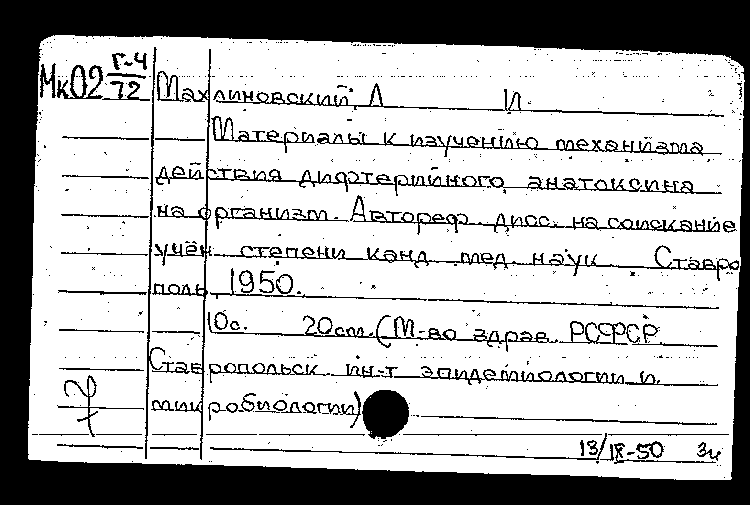 Мк02 Г-4/72
Махлиновский, Л И.
Материалы к изучению механизма
действия дифтерийного анатоксина
на организм. Автореф. дисс. на соискание
учён степени канд. мед. наук Ставро
поль, 1950.
10с. 20см. (М-во здрав. РСФСР.
Ставропольск. ин-т эпидемиологии и
микробиологии)
13/IX-50 Зи